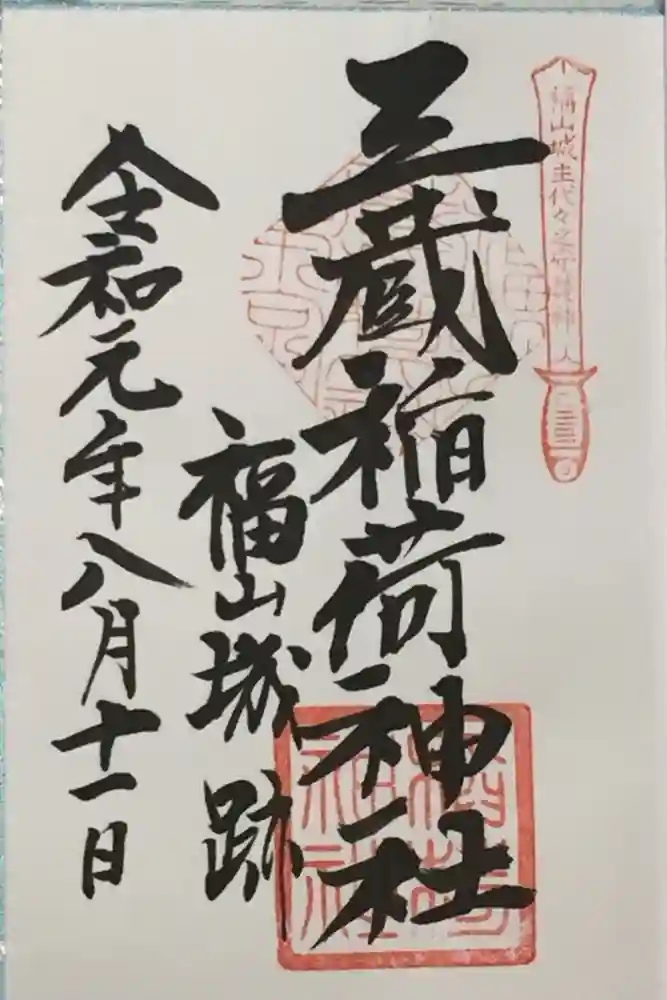 福山城主代々之守護神
三蔵稲荷神社
福山城跡
令和元年八月十一日